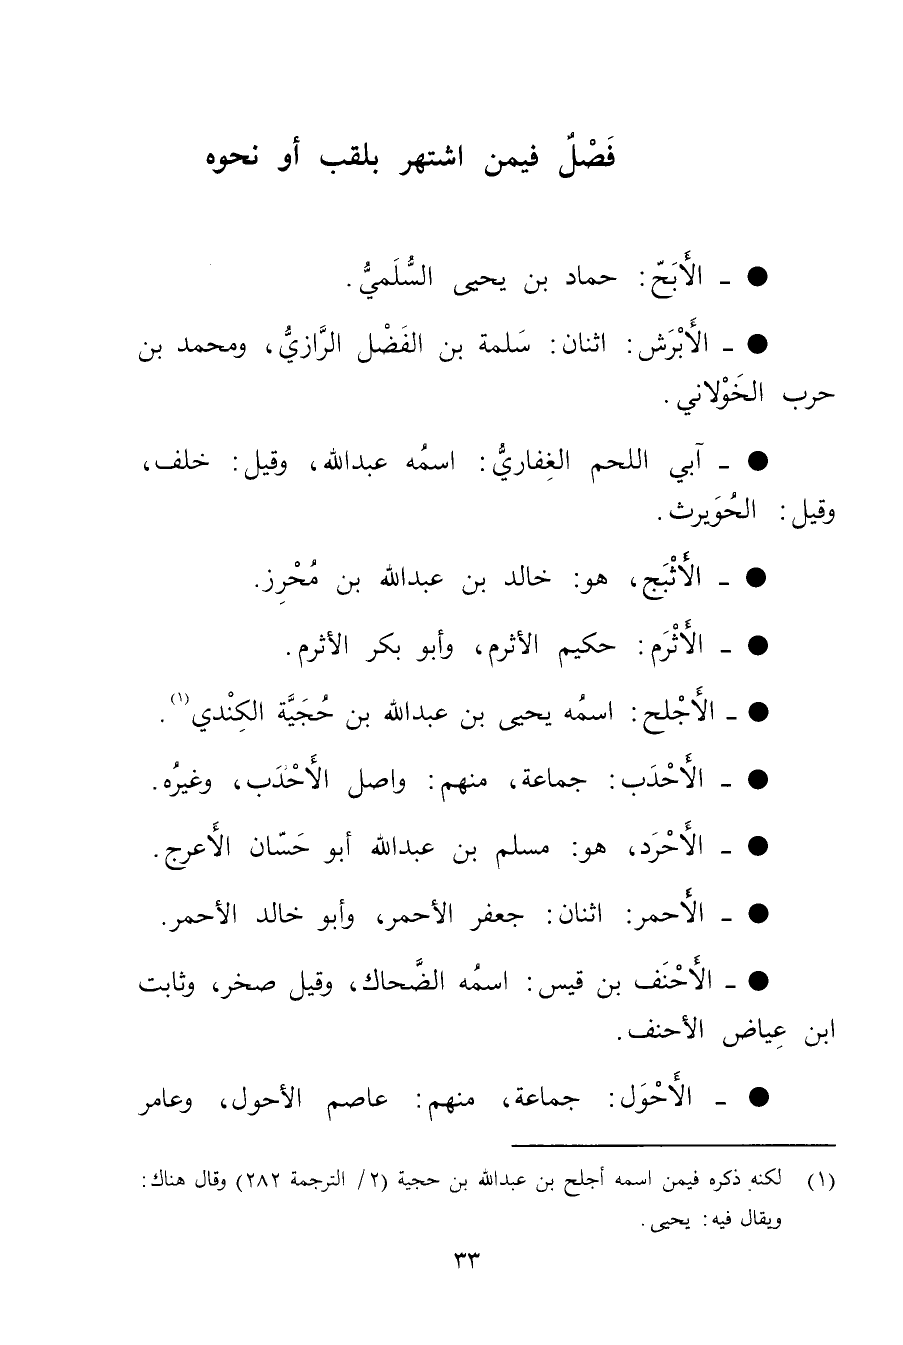 فَصْلٌ فيمن اشتهر بلقب أو نحوه
● ـ الأَبَحّ: حماد بن يحيى السُّلَميُّ.
● ـ الأَبْرَش: اثنان: سَلمة بن الفَضْل الرَّازيُّ، ومحمد بن
حرب الخَوْلاني.
● ـ آبي اللحم الغِفاريُّ: اسمُه عبدالله، وقيل: خلف،
وقيل: الحُوَيرث.
● ـ الأَثْبَج، هو: خالد بن عبدالله بن مُحْرِز.
● ـ الأَثْرَم: حكيم الأثرم، وأبو بكر الأثرم.
● ـ الأَجْلح: اسمُه يحيى بن عبدالله بن حُجَيَّة الكِنْدي(١).
● ـ الأَحْدَب: جماعة، منهم: واصل الأَحْدَب، وغيرُه.
● ـ الأَحْرَد، هو: مسلم بن عبدالله أبو حَسّان الأَعرج.
● ـ الأَحمر: اثنان: جعفر الأحمر، وأبو خالد الأحمر.
● ـ الأَحْنَف بن قيس: اسمُه الضَّحاك، وقيل صخر، وثابت
ابن عِياض الأحنف.
● ـ الأَحْوَل: جماعة، منهم: عاصم الأحول، وعامر
(١) لكنه ذكره فيمن اسمه أجلح بن عبدالله بن حجية (٢/ الترجمة ٢٨٢) وقال هناك:
ويقال فيه: يحيى.
٣٣